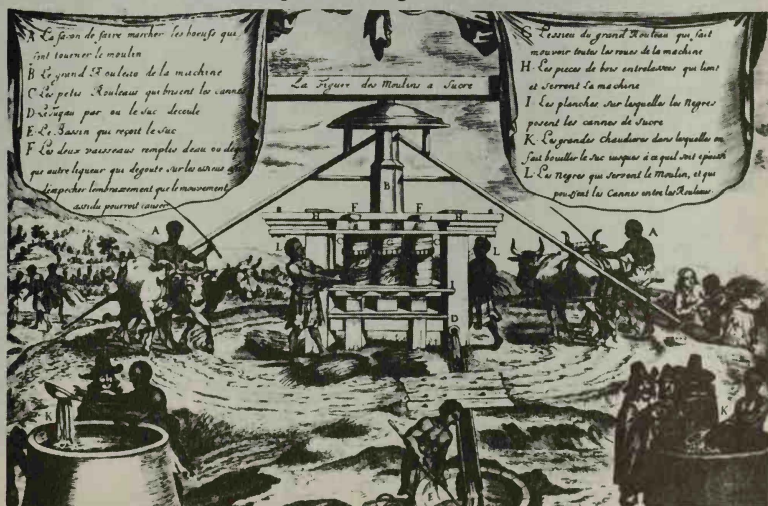 A La façon de faire marcher les boeufs qui
font tourner le moulin
B Le grand Rouleau de la machine
C Les petis Rouleaux qui brisent les cannes
D Le tuyau par ou le suc decoule
E Le Bassin qui reçoit le suc
F Les deux vaisseaux remplis deau ou de
que autre liqueur qui degoute sur les
dempecher lembrazement que le mouvement
assidu pourroit causer
La Figure des Moulins a Sucre
G Lessieu du grand Rouleau qui fait
mouvoir toutes les roues de la machine
H Les pieces de bois entrelassées qui lient
et serrent la machine
I Les planches sur lesquelles les Negres
posent les cannes de sucre
K Les grandes chaudieres dans lesquelles on
fait bouillir le suc jusques a ce quil soit epaissi
L Les Negres qui serrent le Moulin, et qui
poussent les Cannes entre les Rouleaux
A
B
A
H
F
F
H
L
C
G
C
L
I
I
D
K
K
E